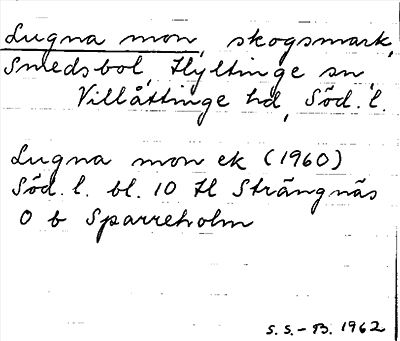 Lugna mon, skogsmark,
Smedsbol, Hyltinge sn,
Villåttinge hd, Söd. l.
Lugna mon ek (1960)
Söd. l. bl. 10 Hl Strängnäs
O b Sparreholm
S. S. - B. 1962